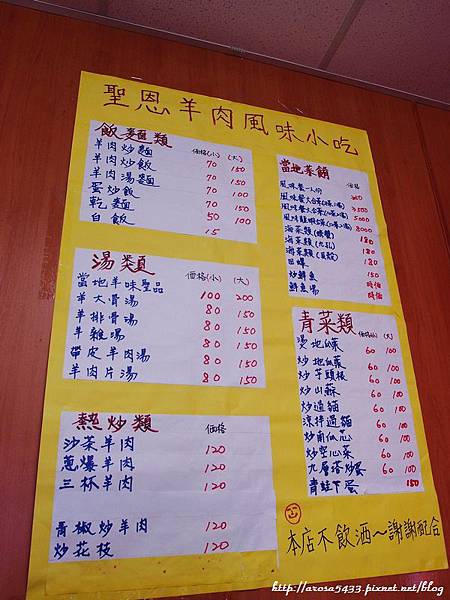 聖恩羊肉風味小吃
飯麵類 價格(小) (大)
羊肉炒麵 70 150
羊肉炒飯 70 150
羊肉湯麵 70 150
蛋炒飯 70 100
乾麵 50 100
白飯 15
湯類 價格(小) (大)
當地羊味聖品 100 200
羊大骨湯 80 150
羊排骨湯 80 150
羊雜湯 80 150
帶皮羊肉湯 80 150
羊肉片湯 80 150
熱炒類 價格
沙茶羊肉 120
蔥爆羊肉 120
三杯羊肉 120
青椒炒羊肉 120
炒花枝 120
當地菜餚 價格
風味餐一人份
風味餐大合菜
5000
8000
海菜類 180
海菜類 180
海菜類 180
150
炒鮮魚 時價
鮮魚湯 時價
青菜類 價格(小) (大)
燙地瓜葉 60 100
炒地瓜葉 60 100
炒芋頭梗 60 100
炒山蘇 60 100
炒過貓 60 100
涼拌過貓 60 100
炒南瓜芯 60 100
炒空心菜 60 100
九層塔炒蛋 60 100
青蛙下蛋 150
本店不飲酒~謝謝配合
http://arosa5433.pixnet.net/blog